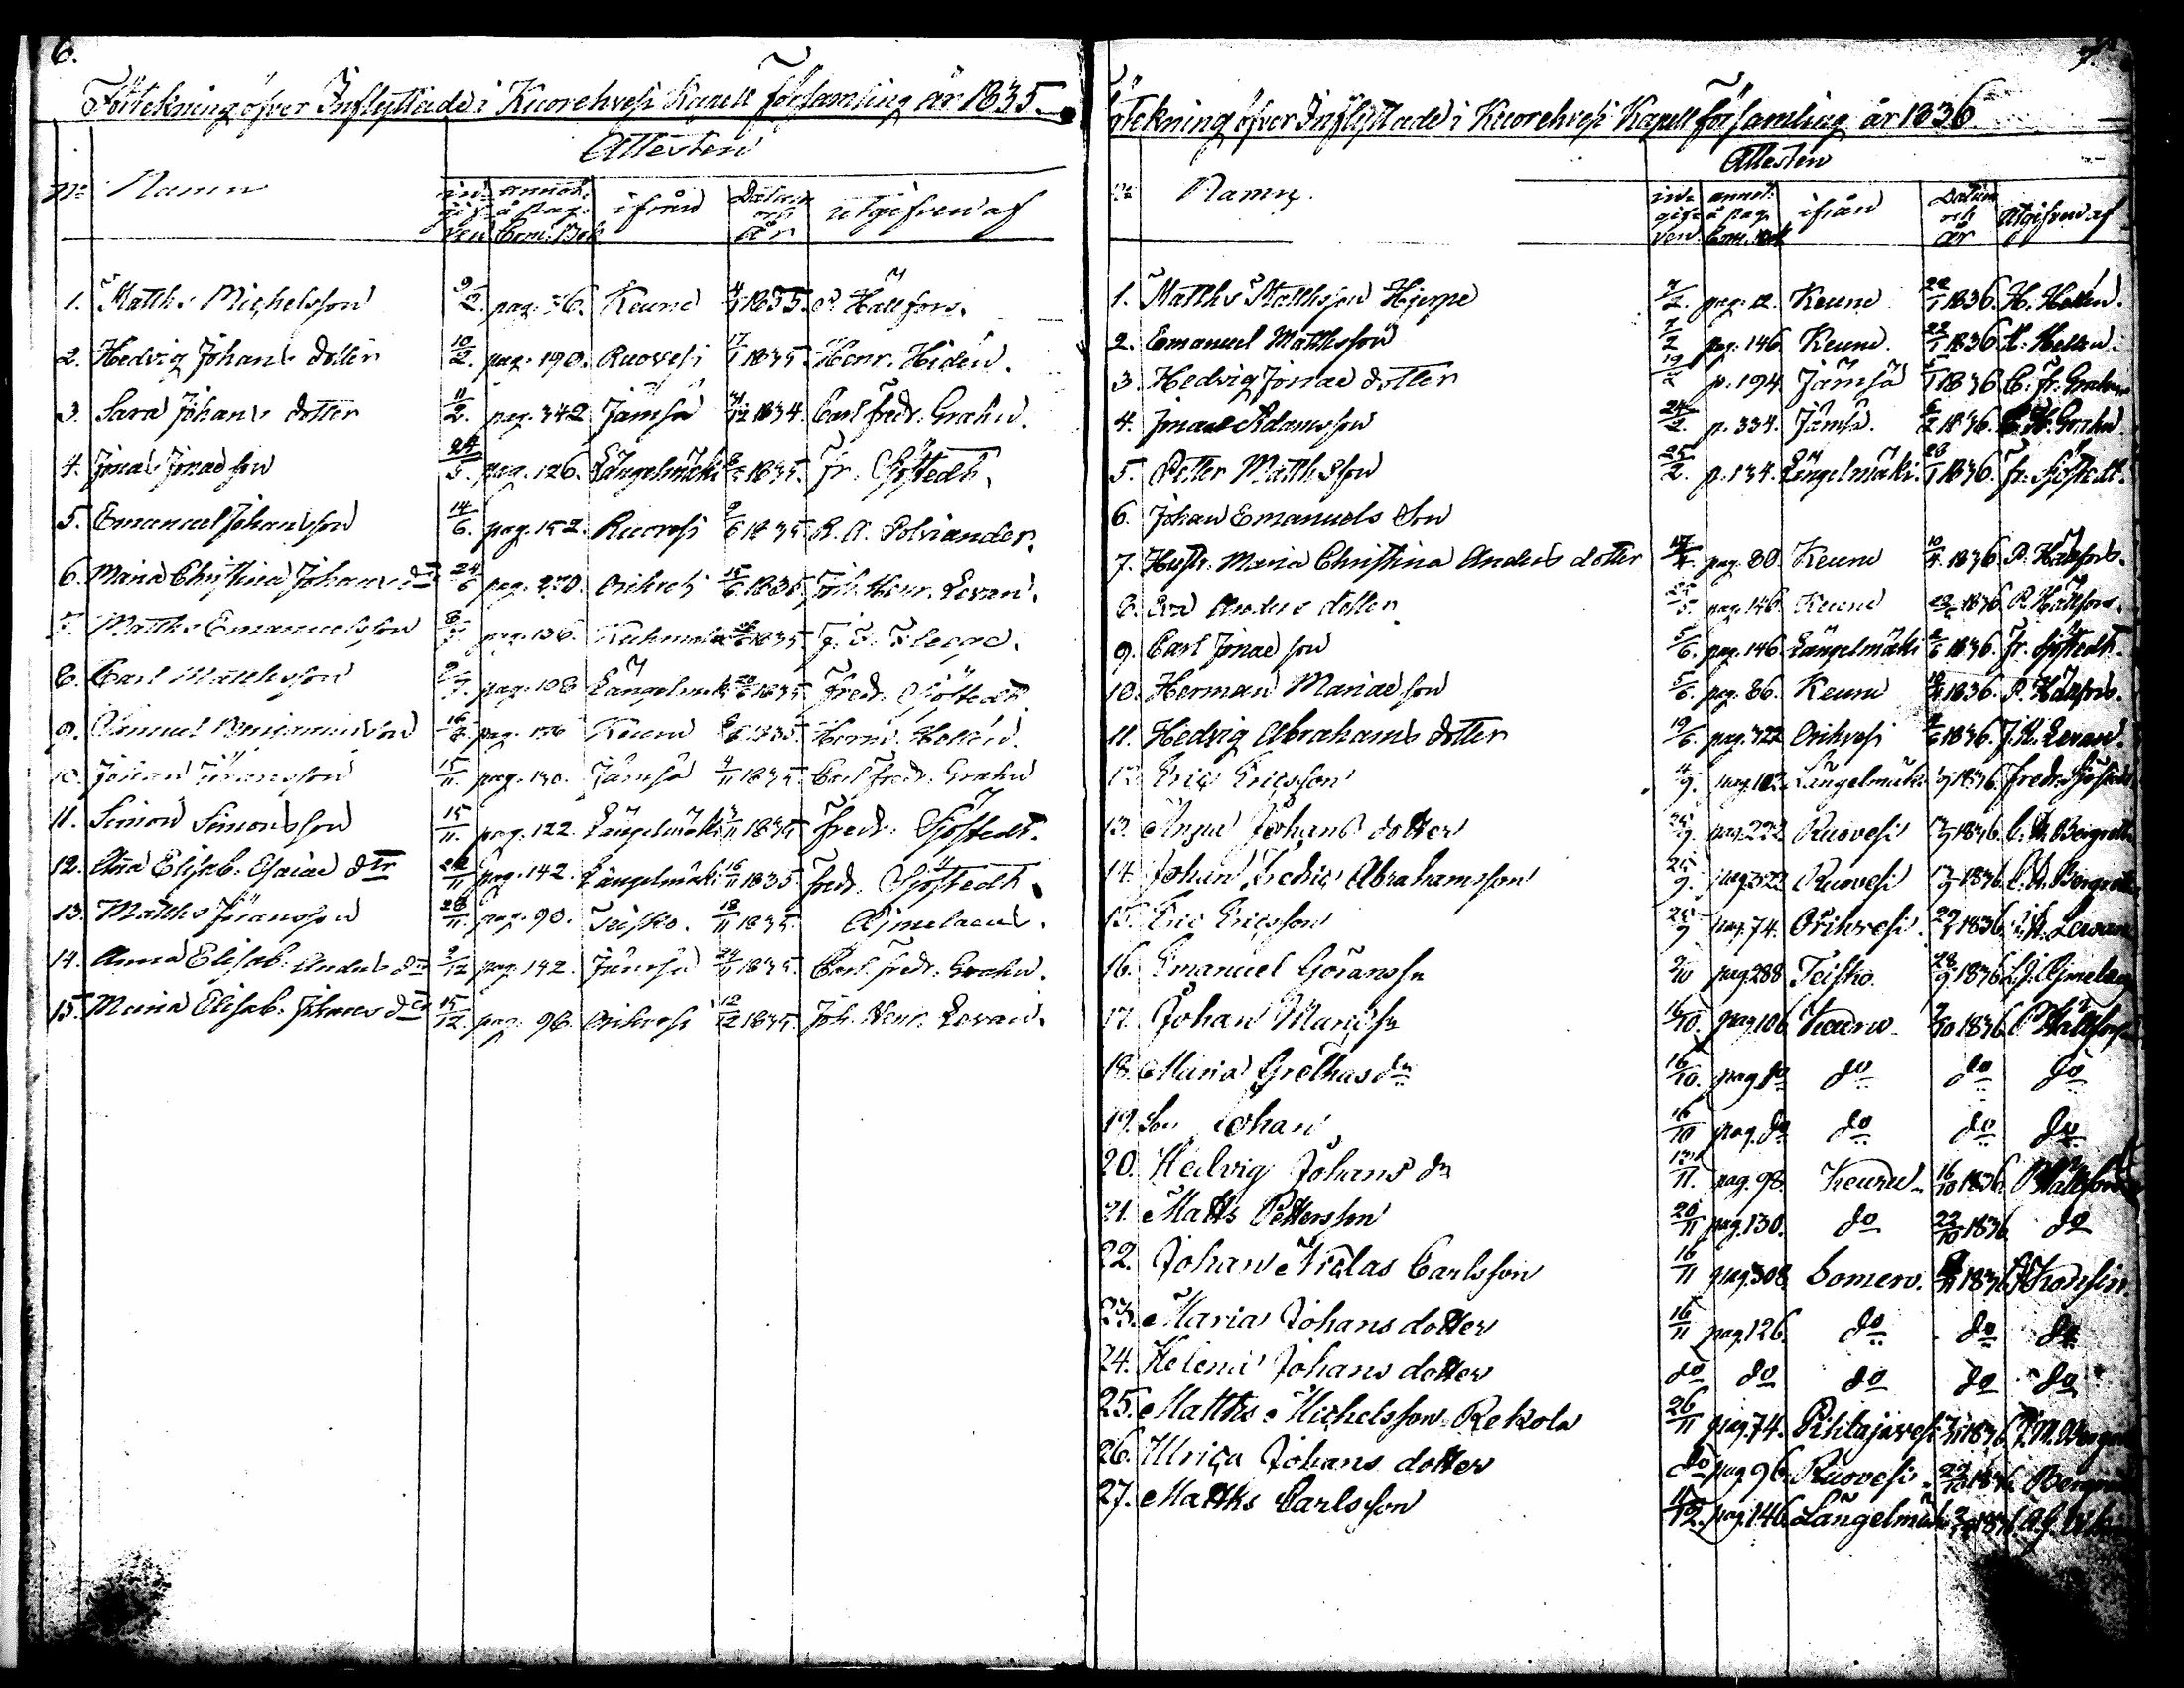 6.
Förtekning öfver Inflyttade i Kuorehvesi Kapell Församling år 1835.
Attesten
No Namn ingifven annot. å pag. Com. Bok ifrån Datum och år utgifven af
1. Matths Michelsson 9/2 pag. 36. Keuru 1835. P. Hällfors.
2. Hedvig Johans dotter 10/2 pag. 190. Ruovesi 17/1 1835. Henr. Hidén.
3. Sara Johans dotter 11/2 pag. 342 Jämsä 1834. Carl Fredr. Grahn.
4. Jonas Jonae son 24/5 pag. 126. Längelmäki 1835. Fr. Sjöstedt.
5. Emanuel Johansson 14/6 pag. 152. Ruovesi 9/6 1835. R. A. Polviander.
6. Maria Christina Johans dr 24/6 pag. 270. Orihvesi 15/6 1835. Joh. Henr. Levan.
7. Matths Emanuelsson 8/7 pag. 136. 1835
8. Carl Matthsson pag. 108 Längelmäki 1835 Fredr. Sjöstedt.
9. Samuel Benjaminsson 16/8 pag. Keuru 1835. Hellén.
10. Johan Göransson 15/11 pag. 130. Jämsä 1835. Carl Fredr. Grahn
11. Simon Simonsson 15/11 pag. 122. Längelmäki 1835 Fredr. Sjöstedt.
12. Anna Elisab. Esaiae dtr 22/11 pag. 142. Längelmäki 16/11 1835 Fredr. Sjöstedt.
13. Matths Göransson 28/11 pag. 90. Teisko. 18/11 1835. Ajmelaeus.
14. Anna Elisab. Anders dr 9/12 pag. 142. Jämsä 24/11 1835. Carl Fredr. Grahn.
15. Maria Elisab. Johans dtr 15/12 pag. 96. Orihvesi 12/12 1835. Joh. Henr. Levan.
7.
Förtekning öfver Inflyttade i Kuorehvesi Kapell församling år 1836
Attesten
No Namn. ingifven annot. å pag. Com. Bok ifrån Datum och år utgifven af
1. Matths Matthsson Hjerpe 7/2. pag. 12. Keuru 22/1 1836. H. Hellén.
2. Emanuel Matthsson 7/2 pag. 146 Keuru. 22/1 1836. H. Hellén.
3. Hedvig Jonae dotter 19/2 p. 194 Jämsä 1836 C. Fr. Grahn
4. Jonae Adamsson 24/2. p. 334. Jämsä. 6/2 1836. Grahn.
5. Petter Matthsson 25/2. p. 134. Längelmäki. 26/1 1836. Fr. Sjöstedt.
6. Johan Emanuels Son
7. Hustr. Maria Christina Anders dotter pag. 80. Keuru 10/4 1836 P. Hällfors.
8. Eva Anders dotter. pag. 146. Keuru 1836 P. Hällfors.
9. Carl Jonae son 5/6. pag. 146 Längelmäki 1836. Fr. Sjöstedt.
10. Herman Mariae son 5/6 pag. 86. Keuru 1836. P. Hällfors.
11. Hedvig Abrahams dotter 19/6. pag. 322 Orihvesi 1836. J. H. Levan.
12. Eric Ericsson 4/9. pag. 102. Längelmäki 1836. Fredr. Sjöstedt
13. Anna Johans dotter pag. 222. Ruovesi 1836. Bergroth
14. Johan Fredric Abrahamsson 25/9. pag. 322 Ruovesi 1836. Bergroth
15. Eric Ericsson 25/9 pag. 74. Orihvesi. 1836. J. H. Levan
16. Emanuel Göranssn pag. 288 Teisko. 28/9. 1836 Ajmelaeus
17. Johan Mariæ sn 16/10. pag. 106 Keuru. 1836 P. Hällfors
18. Maria Grelhas dr 16/10. pag. do do do do
19. Son Johan 16/10 pag. do do do do
20. Hedvig Johans dr pag. 98. Keuru. 16/10 1836. P. Hällfors
21. Matts Pettersson 20/11 pag. 130. do 22/10 1836 do
22. Johan Niclas Carlsson 16/11 pag. 308 Somero. 1836
23. Maria Johans dotter 16/11 pag. 126. do do do
24. Helena Johans dotter do do do do do
25. Matths Michelsson Rekola 26/11 pag. 74. Pihlajavesi 1836
26. Ulrica Johans dotter do pag. 96. Ruovesi. 1836
27. Matths Carlsson pag. 146 Längelmäki 1836